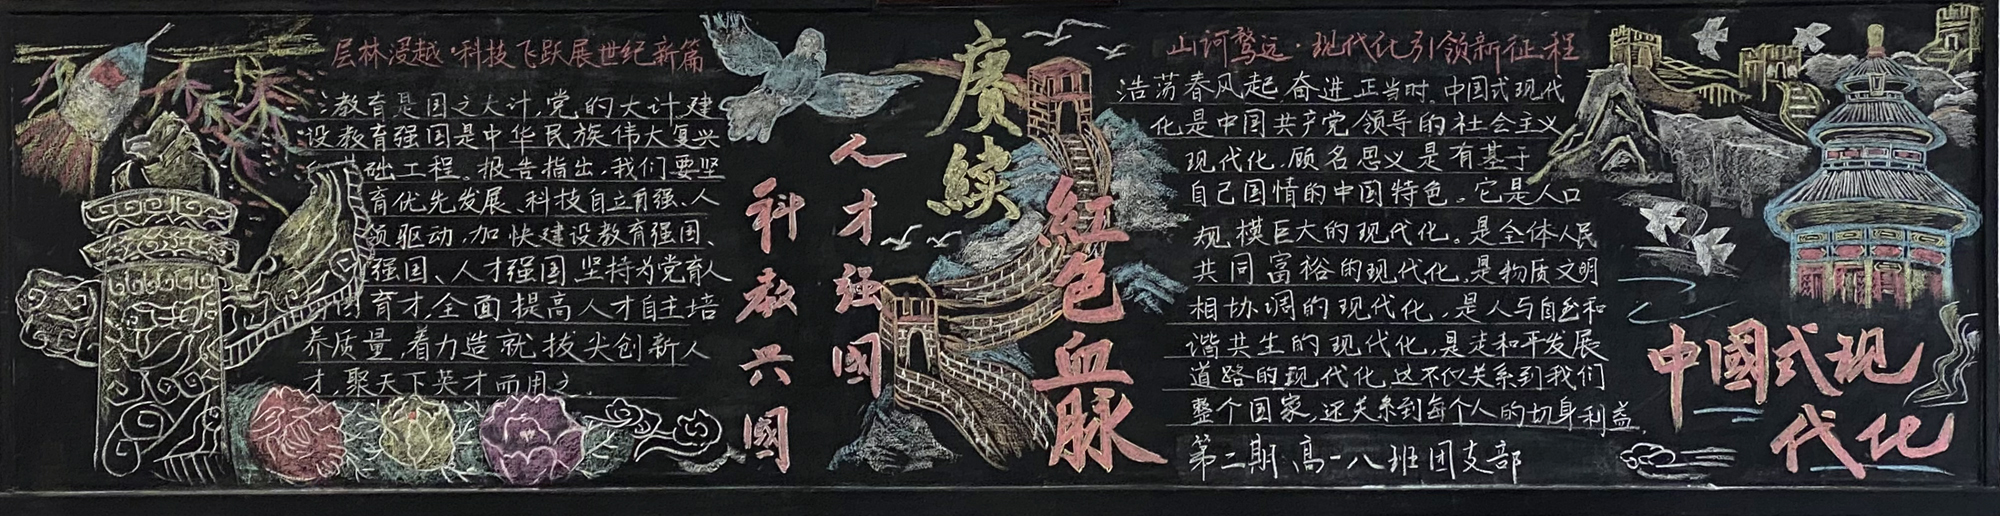 层林漫越·科技飞跃展世纪新篇
教育是国之大计,党的大计建
设教育强国是中华民族伟大复兴
础工程。报告指出,我们要坚
育优先发展、科技自立自强、人
领驱动,加快建设教育强国、
强国、人才强国坚持为党育人
育才,全面提高人才自主培
养质量,着力造就拔尖创新人
才,聚天下英才而用之.
科教兴国
人才强國
赓续
紅色血脉
山河骛远·现代化引领新征程
浩荡春风起,奋进正当时.中国式现代
化是中国共产党领导的社会主义
现代化,顾名思义是有基于
自己国情的中国特色。它是人口
规模巨大的现代化。是全体人民
共同富裕的现代化,是物质文明
相协调的现代化,是人与自然和
谐共生的现代化,是走和平发展
道路的现代化,这不仅关系到我们
整个国家,还关系到每个人的切身利益.
第二期高一八班团支部
中國式现
代化